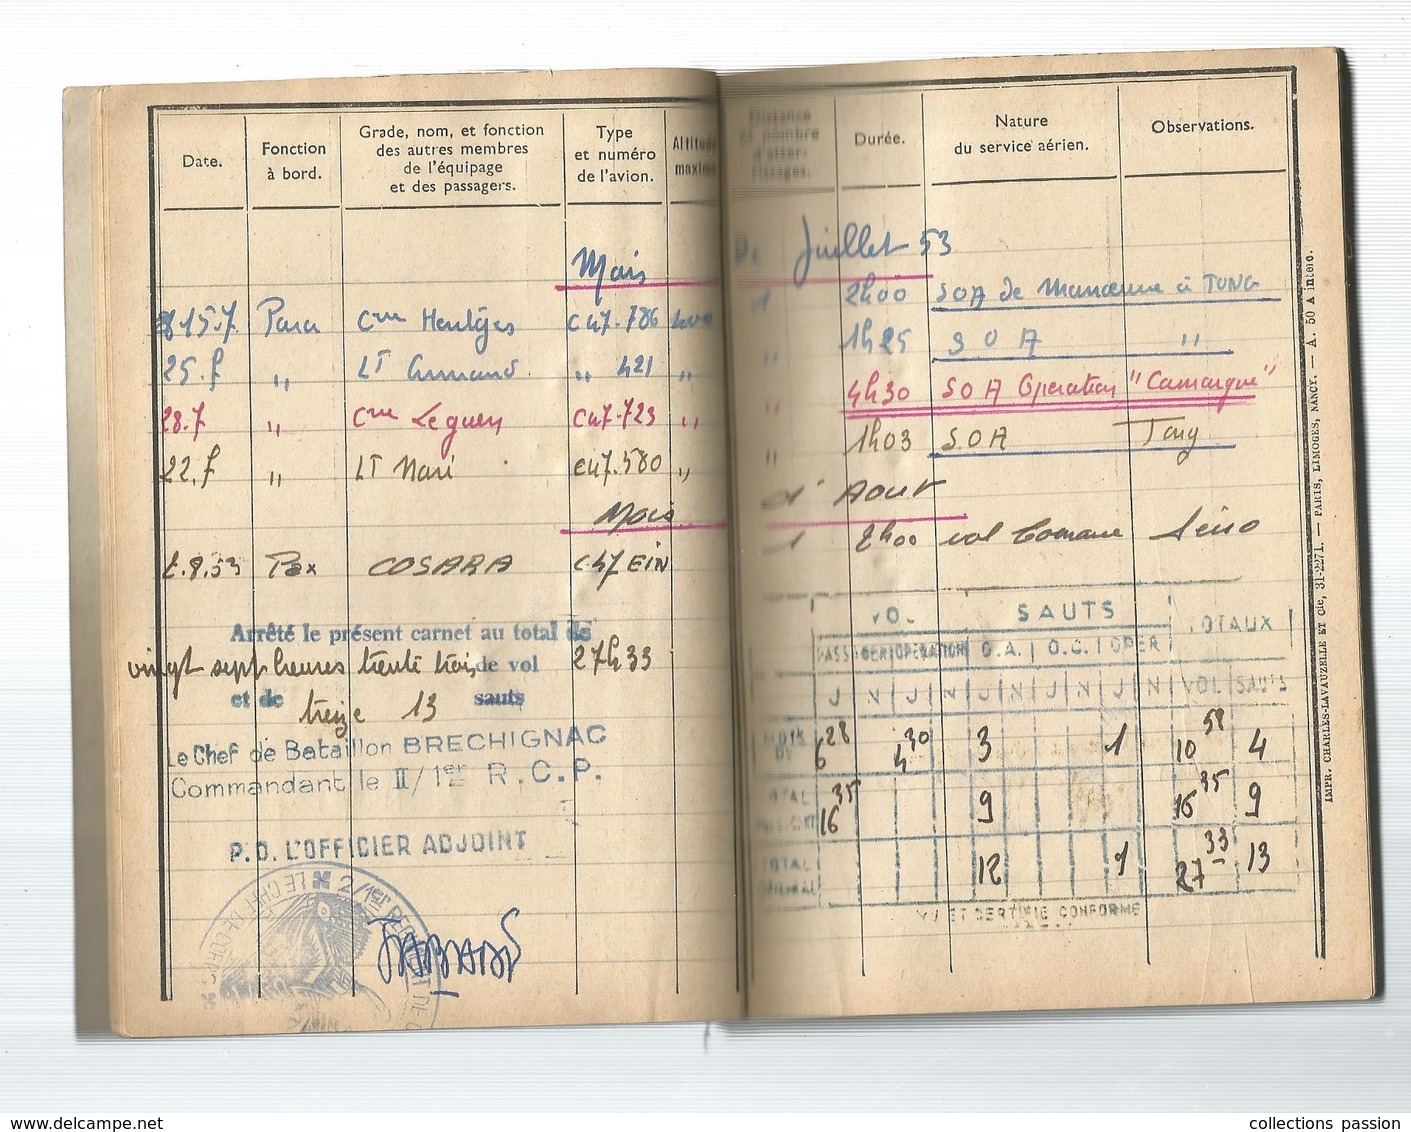 Date.
Fonction
à bord.
Grade, nom, et fonction
des autres membres
de l'équipage
et des passagers.
Type
et numéro
de l'avion.
Altitude
maxima
Distance
et nombre
d'atter-
rissages.
Durée.
Nature
du service aérien.
Observations.
Mois De Juillet 53
15.7 Para Cne C47.786 400 1 2h00 SOA de Manoeuvre à TONG
25.7 " LT " 421 " " 1h25 SOA "
28.7 " Cne Le guen C47.723 " " 4h30 SOA Operation "Camargue"
22.7 " LT C47.580 " " 1h03 S.O.A Tong
Mois d' Aout
8.53 Pax COSARA C.47 EIN 1 2h00 vol Seno
Arrêté le présent carnet au total de
vingt sept heures trente trois de vol 27h33
et de treize 13 sauts
Le Chef de Bataillon BRECHIGNAC
Commandant le II/1er R.C.P.
P.O. L'OFFICIER ADJOINT
VOL SAUTS TOTAUX
PASSAGER OPERATION O.A. O.C. OPER
J N J N J N J N J N VOL SAUTS
MOIS DU 6 28 4 30 3 1 10 58 4
TOTAL 16 35 9 16 35 9
TOTAL GENERAL 12 1 27 33 13
VU ET CERTIFIE CONFORME
IMPR. CHARLES-LAVAUZELLE ET Cie, 31-2271. — PARIS, LIMOGES, NANCY. — A. 50 A interc.
collections passion